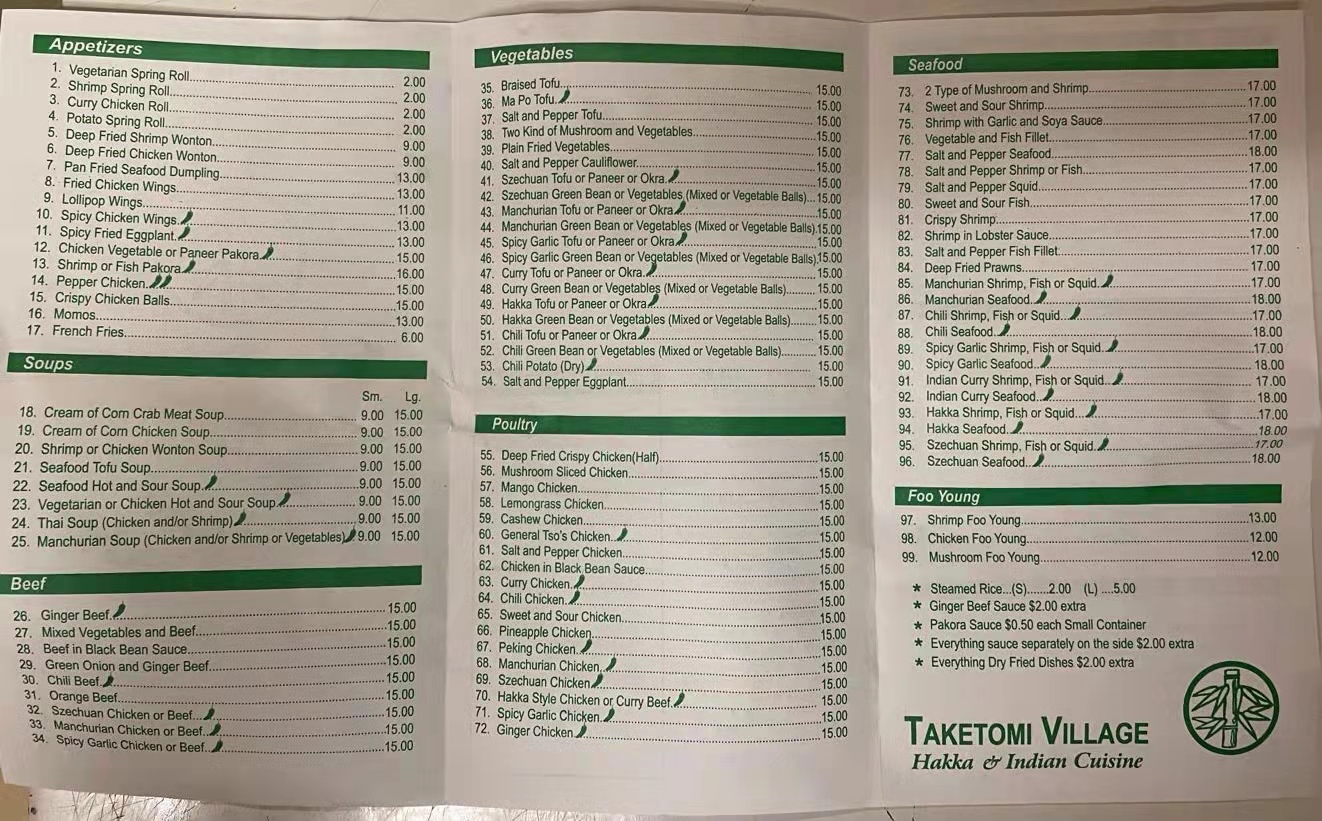 Appetizers
1. Vegetarian Spring Roll 2.00
2. Shrimp Spring Roll 2.00
3. Curry Chicken Roll 2.00
4. Potato Spring Roll 2.00
5. Deep Fried Shrimp Wonton 9.00
6. Deep Fried Chicken Wonton 9.00
7. Pan Fried Seafood Dumpling 13.00
8. Fried Chicken Wings 13.00
9. Lollipop Wings 11.00
10. Spicy Chicken Wings 13.00
11. Spicy Fried Eggplant 13.00
12. Chicken Vegetable or Paneer Pakora 15.00
13. Shrimp or Fish Pakora 16.00
14. Pepper Chicken 15.00
15. Crispy Chicken Balls 15.00
16. Momos 13.00
17. French Fries 6.00
Soups
Sm. Lg.
18. Cream of Corn Crab Meat Soup 9.00 15.00
19. Cream of Corn Chicken Soup 9.00 15.00
20. Shrimp or Chicken Wonton Soup 9.00 15.00
21. Seafood Tofu Soup 9.00 15.00
22. Seafood Hot and Sour Soup 9.00 15.00
23. Vegetarian or Chicken Hot and Sour Soup 9.00 15.00
24. Thai Soup (Chicken and/or Shrimp) 9.00 15.00
25. Manchurian Soup (Chicken and/or Shrimp or Vegetables) 9.00 15.00
Beef
26. Ginger Beef 15.00
27. Mixed Vegetables and Beef 15.00
28. Beef in Black Bean Sauce 15.00
29. Green Onion and Ginger Beef 15.00
30. Chili Beef 15.00
31. Orange Beef 15.00
32. Szechuan Chicken or Beef 15.00
33. Manchurian Chicken or Beef 15.00
34. Spicy Garlic Chicken or Beef 15.00
Vegetables
35. Braised Tofu 15.00
36. Ma Po Tofu 15.00
37. Salt and Pepper Tofu 15.00
38. Two Kind of Mushroom and Vegetables 15.00
39. Plain Fried Vegetables 15.00
40. Salt and Pepper Cauliflower 15.00
41. Szechuan Tofu or Paneer or Okra 15.00
42. Szechuan Green Bean or Vegetables (Mixed or Vegetable Balls) 15.00
43. Manchurian Tofu or Paneer or Okra 15.00
44. Manchurian Green Bean or Vegetables (Mixed or Vegetable Balls) 15.00
45. Spicy Garlic Tofu or Paneer or Okra 15.00
46. Spicy Garlic Green Bean or Vegetables (Mixed or Vegetable Balls) 15.00
47. Curry Tofu or Paneer or Okra 15.00
48. Curry Green Bean or Vegetables (Mixed or Vegetable Balls) 15.00
49. Hakka Tofu or Paneer or Okra 15.00
50. Hakka Green Bean or Vegetables (Mixed or Vegetable Balls) 15.00
51. Chili Tofu or Paneer or Okra 15.00
52. Chili Green Bean or Vegetables (Mixed or Vegetable Balls) 15.00
53. Chili Potato (Dry) 15.00
54. Salt and Pepper Eggplant 15.00
Poultry
55. Deep Fried Crispy Chicken(Half) 15.00
56. Mushroom Sliced Chicken 15.00
57. Mango Chicken 15.00
58. Lemongrass Chicken 15.00
59. Cashew Chicken 15.00
60. General Tso's Chicken 15.00
61. Salt and Pepper Chicken 15.00
62. Chicken in Black Bean Sauce 15.00
63. Curry Chicken 15.00
64. Chili Chicken 15.00
65. Sweet and Sour Chicken 15.00
66. Pineapple Chicken 15.00
67. Peking Chicken 15.00
68. Manchurian Chicken 15.00
69. Szechuan Chicken 15.00
70. Hakka Style Chicken or Curry Beef 15.00
71. Spicy Garlic Chicken 15.00
72. Ginger Chicken 15.00
Seafood
73. 2 Type of Mushroom and Shrimp 17.00
74. Sweet and Sour Shrimp 17.00
75. Shrimp with Garlic and Soya Sauce 17.00
76. Vegetable and Fish Fillet 17.00
77. Salt and Pepper Seafood 18.00
78. Salt and Pepper Shrimp or Fish 17.00
79. Salt and Pepper Squid 17.00
80. Sweet and Sour Fish 17.00
81. Crispy Shrimp 17.00
82. Shrimp in Lobster Sauce 17.00
83. Salt and Pepper Fish Fillet 17.00
84. Deep Fried Prawns 17.00
85. Manchurian Shrimp, Fish or Squid 17.00
86. Manchurian Seafood 18.00
87. Chili Shrimp, Fish or Squid 17.00
88. Chili Seafood 18.00
89. Spicy Garlic Shrimp, Fish or Squid 17.00
90. Spicy Garlic Seafood 18.00
91. Indian Curry Shrimp, Fish or Squid 17.00
92. Indian Curry Seafood 18.00
93. Hakka Shrimp, Fish or Squid 17.00
94. Hakka Seafood 18.00
95. Szechuan Shrimp, Fish or Squid 17.00
96. Szechuan Seafood 18.00
Foo Young
97. Shrimp Foo Young 13.00
98. Chicken Foo Young 12.00
99. Mushroom Foo Young 12.00
* Steamed Rice...(S).......2.00 (L) ....5.00
* Ginger Beef Sauce $2.00 extra
* Pakora Sauce $0.50 each Small Container
* Everything sauce separately on the side $2.00 extra
* Everything Dry Fried Dishes $2.00 extra
TAKETOMI VILLAGE
Hakka & Indian Cuisine